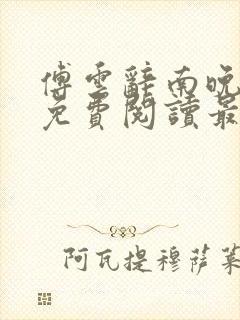 傅雲辭南晚
免費閱讀最
阿瓦提穆萨莱